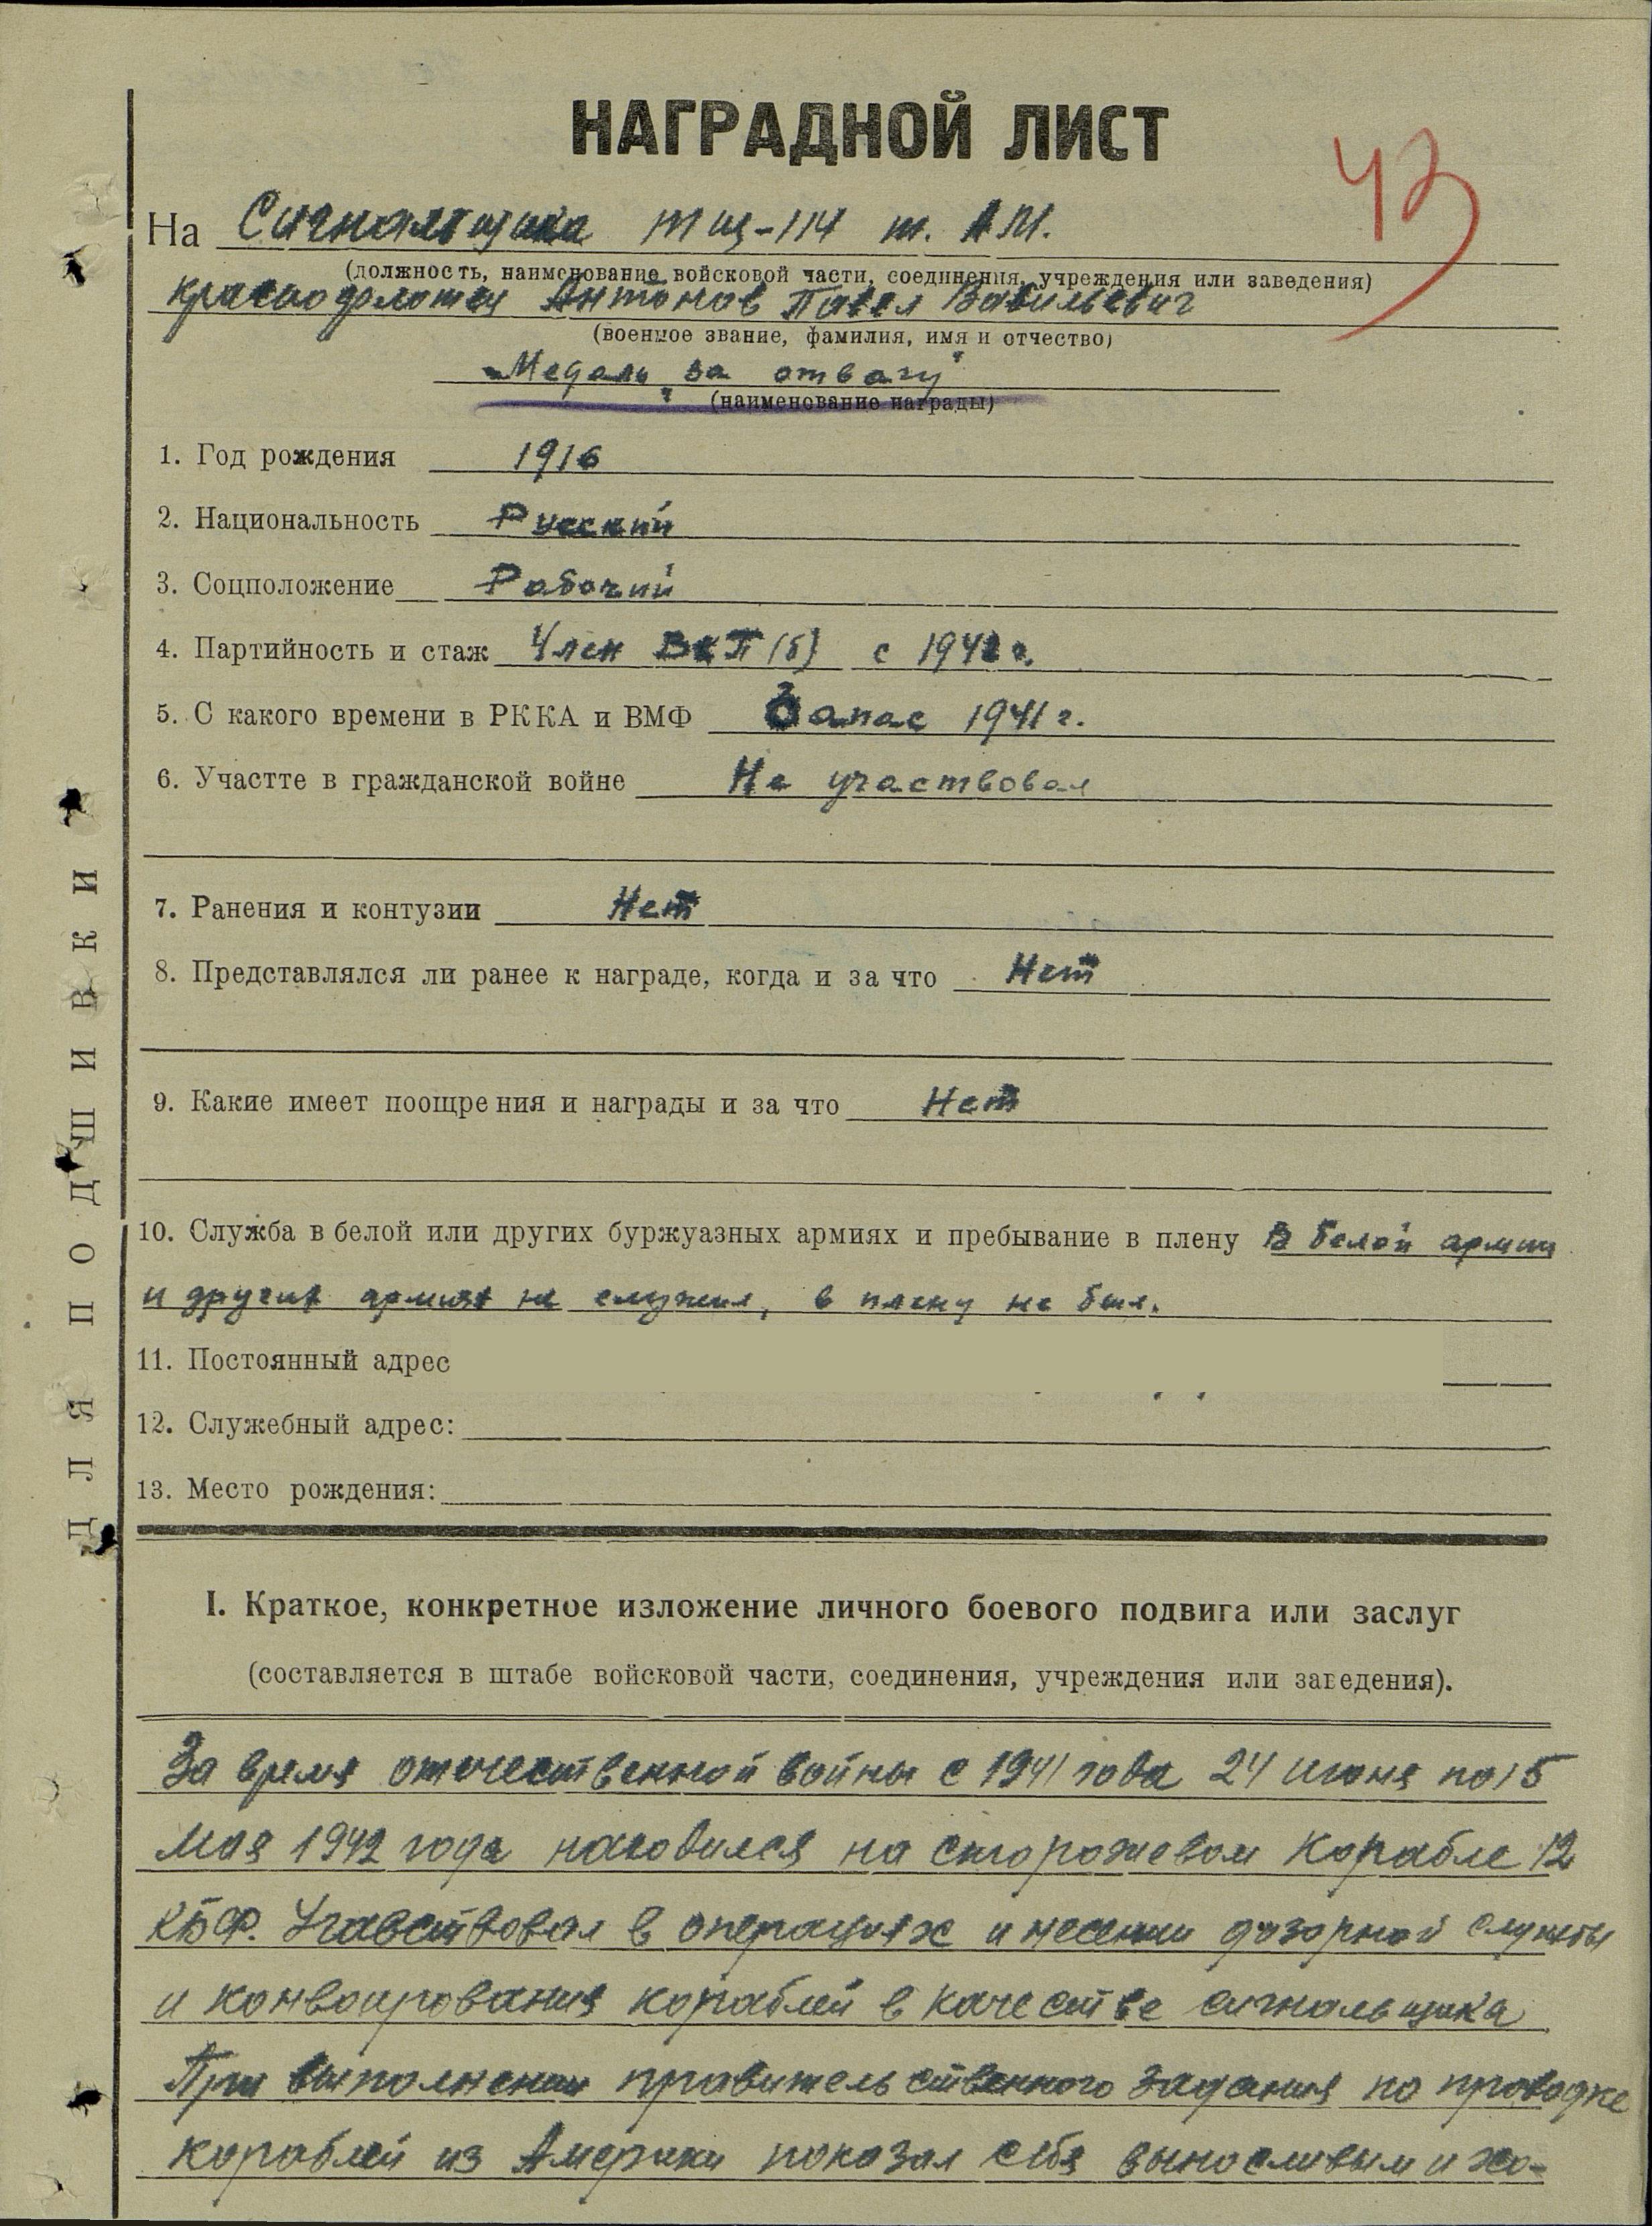 НАГРАДНОЙ ЛИСТ
43
На Сигнальщика тщ-114 т. АМ.
(должность, наименование войсковой части, соединения, учреждения или заведения)
краснофлотец Антонов Павел Вавильевич
(военное звание, фамилия, имя и отчество)
„Медаль „за отвагу"
(наименование награды)
1. Год рождения 1916
2. Национальность Русский
3. Соцположение Рабочий
4. Партийность и стаж Член ВКП(б) с 1942 г.
5. С какого времени в РККА и ВМФ Запас 1941 г.
6. Участте в гражданской войне Не участвовал
7. Ранения и контузии Нет
8. Представлялся ли ранее к награде, когда и за что Нет
9. Какие имеет поощрения и награды и за что Нет
10. Служба в белой или других буржуазных армиях и пребывание в плену В белой армии
и других армиях не служил, в плену не был.
11. Постоянный адрес
12. Служебный адрес:
13. Место рождения:
I. Краткое, конкретное изложение личного боевого подвига или заслуг
(составляется в штабе войсковой части, соединения, учреждения или заведения).
За время отечественной войны с 1941 года 24 июня по 15
мая 1942 года находился на сторожевом корабле 12
КБФ. Учавствовал в операциях и несении дозорной службы
и конвоирования кораблей в качестве сигнальщика
При выполнении правительственного задания по проводке
кораблей из Америки показал себя выносливым и хо-
ДЛЯ ПОДШИВКИ